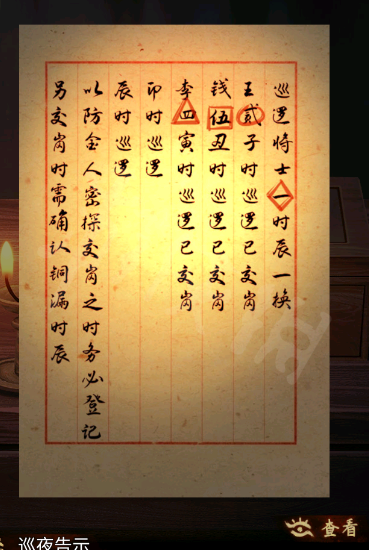 巡逻将士一时辰一换
王贰子时巡逻已交岗
钱伍丑时巡逻已交岗
李四寅时巡逻已交岗
卯时巡逻
辰时巡逻
以防金人密探交岗之时务必登记
另交岗时需确认铜漏时辰
查看
巡夜告示